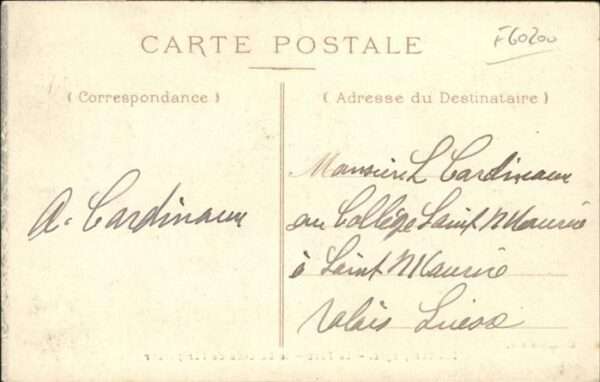 CARTE POSTALE
F60200
( Correspondance )
( Adresse du Destinataire )
A. Cardinaux
Monsieur L Cardinaux
au Collège Saint Maurice
à Saint Maurice
Valais Suisse